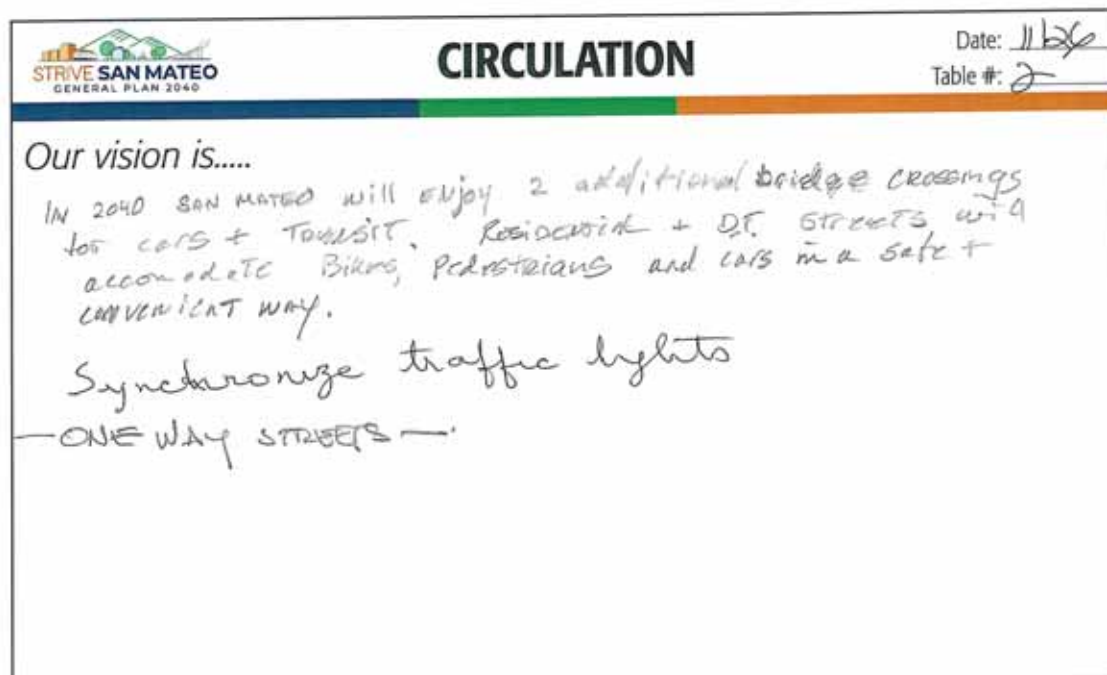 STRIVE SAN MATEO
GENERAL PLAN 2040
CIRCULATION
Date: 11/26
Table #: 2
Our vision is.....
IN 2040 SAN MATEO will ENJoy 2 additional bridge crossings
for cars + TRANSIT. RESIDENTIAL + D.T. STREETS will
accomodate Bikes, Pedestrians and cars in a safe +
convenient way.
Synchronize traffic lights
— ONE WAY STREETS —.